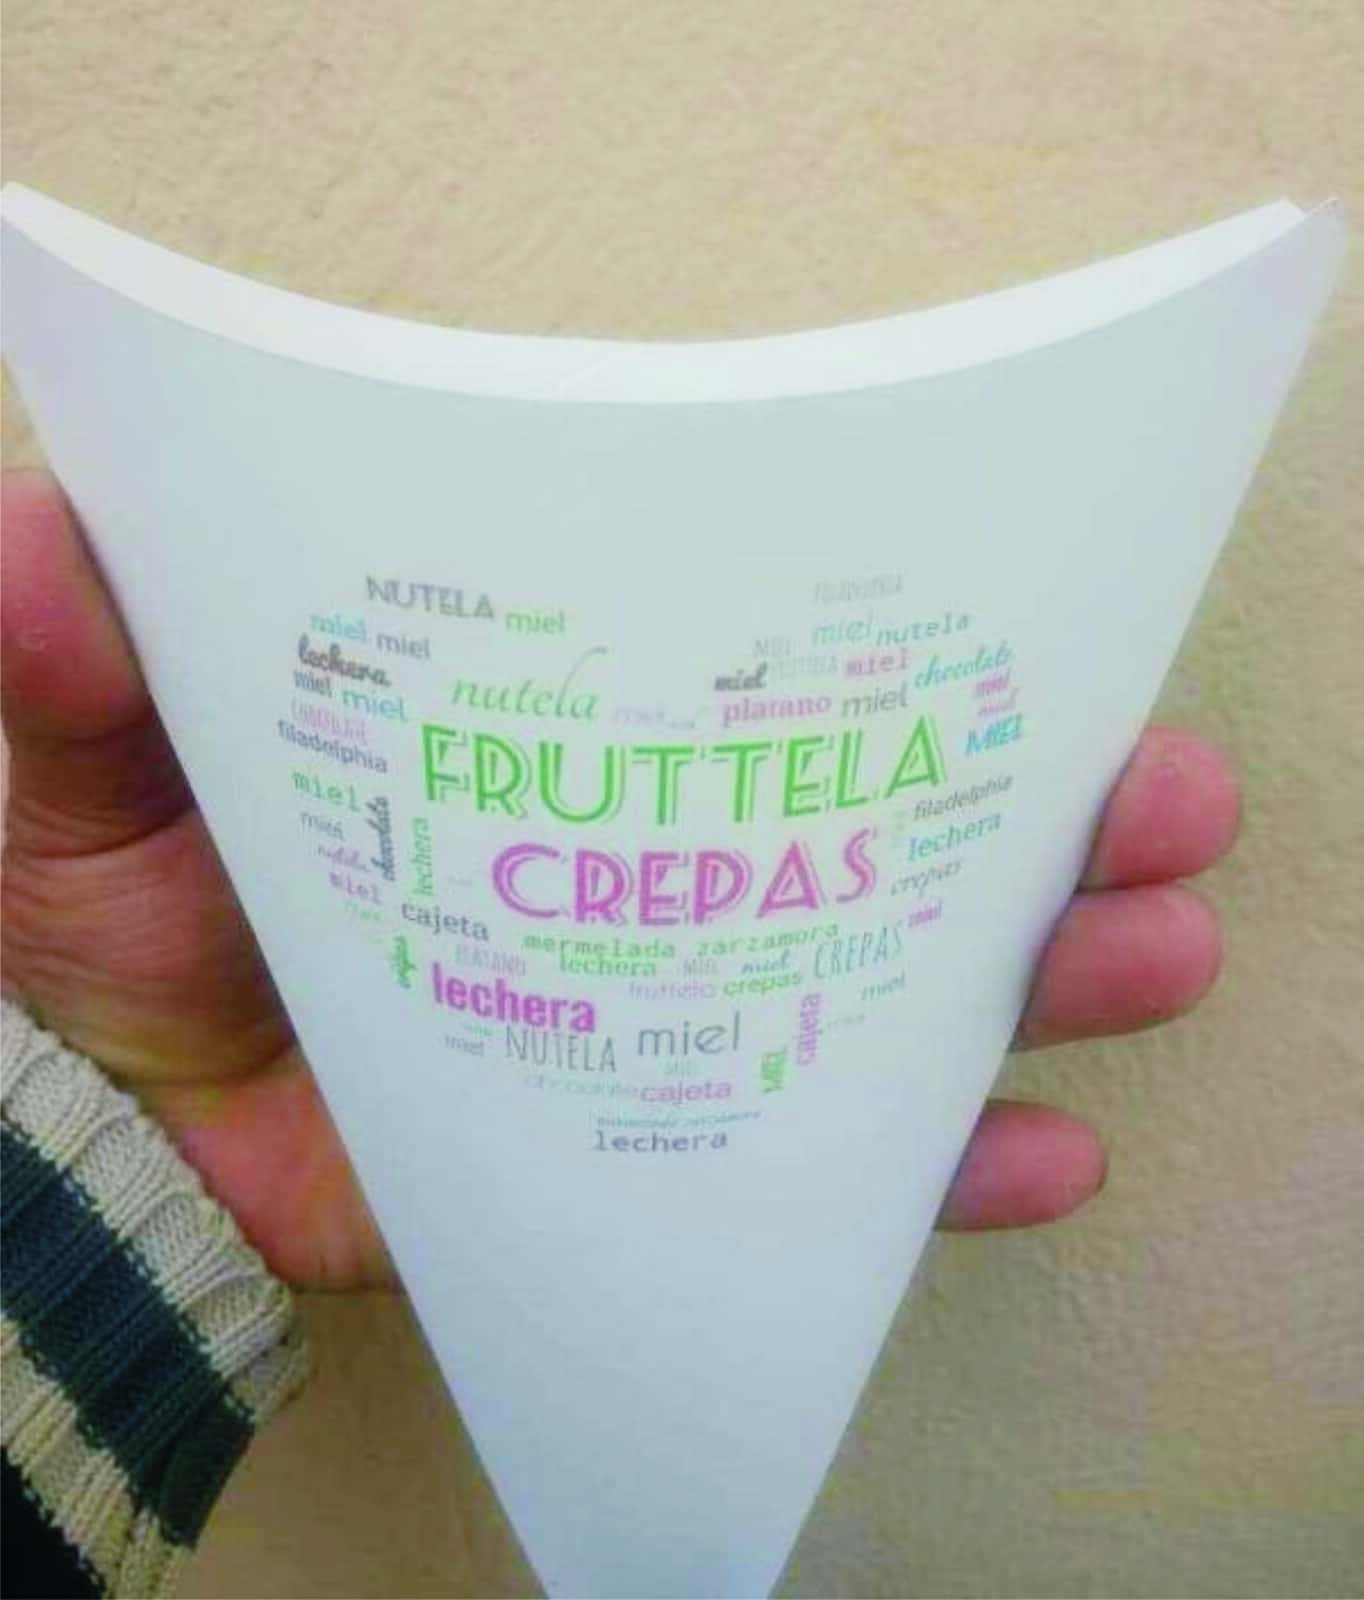 NUTELA miel
miel miel
lechera
miel miel
nutela
filadelphia
miel
chocolate
lechera
miel
miel nutela
miel miel chocolate
platano miel
MIEL
FRUTTELA
CREPAS
filadelphia
lechera
crepas
miel
cajeta
mermelada zarzamora
PLATANO lechera MIEL miel CREPAS
fruttela crepas
lechera
miel
cajeta
miel NUTELA miel
MIEL
chocolate cajeta
mermelada zarzamora
lechera